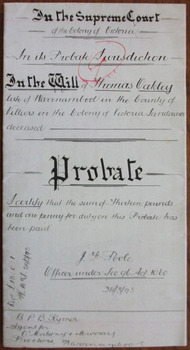 In the Supreme Court
of the Colony of Victoria
In its Probate Jurisdiction
In the Will of Thomas Oakley
late of Warrnambool in the County of
Villiers in the Colony of Victoria
deceased
Probate
I certify that the sum of Thirteen pounds
and one penny for duty on this Probate has
been paid
Officer under
B. P. B. Rymer
Agent for
Proctors Warrnambool